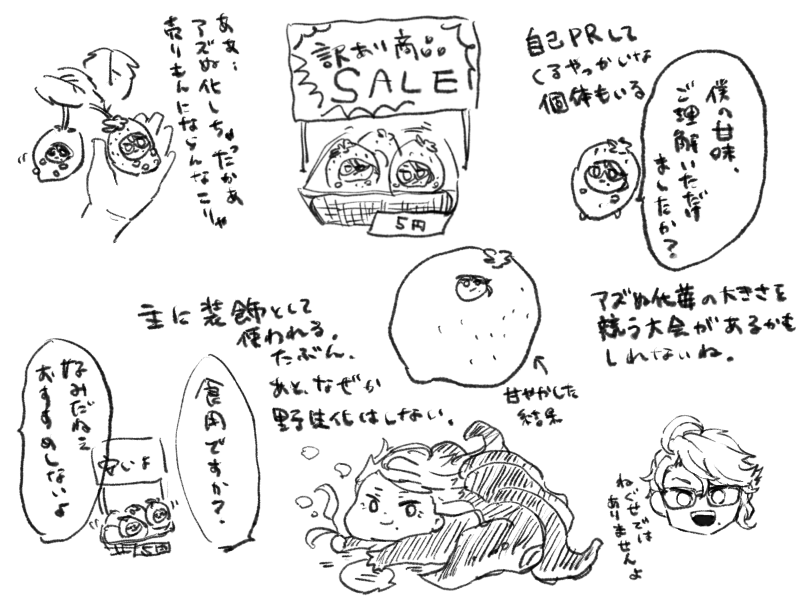 ああ…
アズぬ化しちゃったかあ
売りもんにならんなこりゃ
訳あり商品
SALE
5円
自己PRして
くるやっかいな
個体もいる
僕の甘味、
ご理解いただけ
ましたか?
主に装飾として
使われる。
たぶん、
あと、なぜか
野生化はしない。
甘やかした
結果
アズぬ化苺の大きさを
競う大会があるかも
しれないね。
食用ですか?
好みだねェ
おすすめしないよ
安いよ
5円
ねぐせでは
ありませんよ